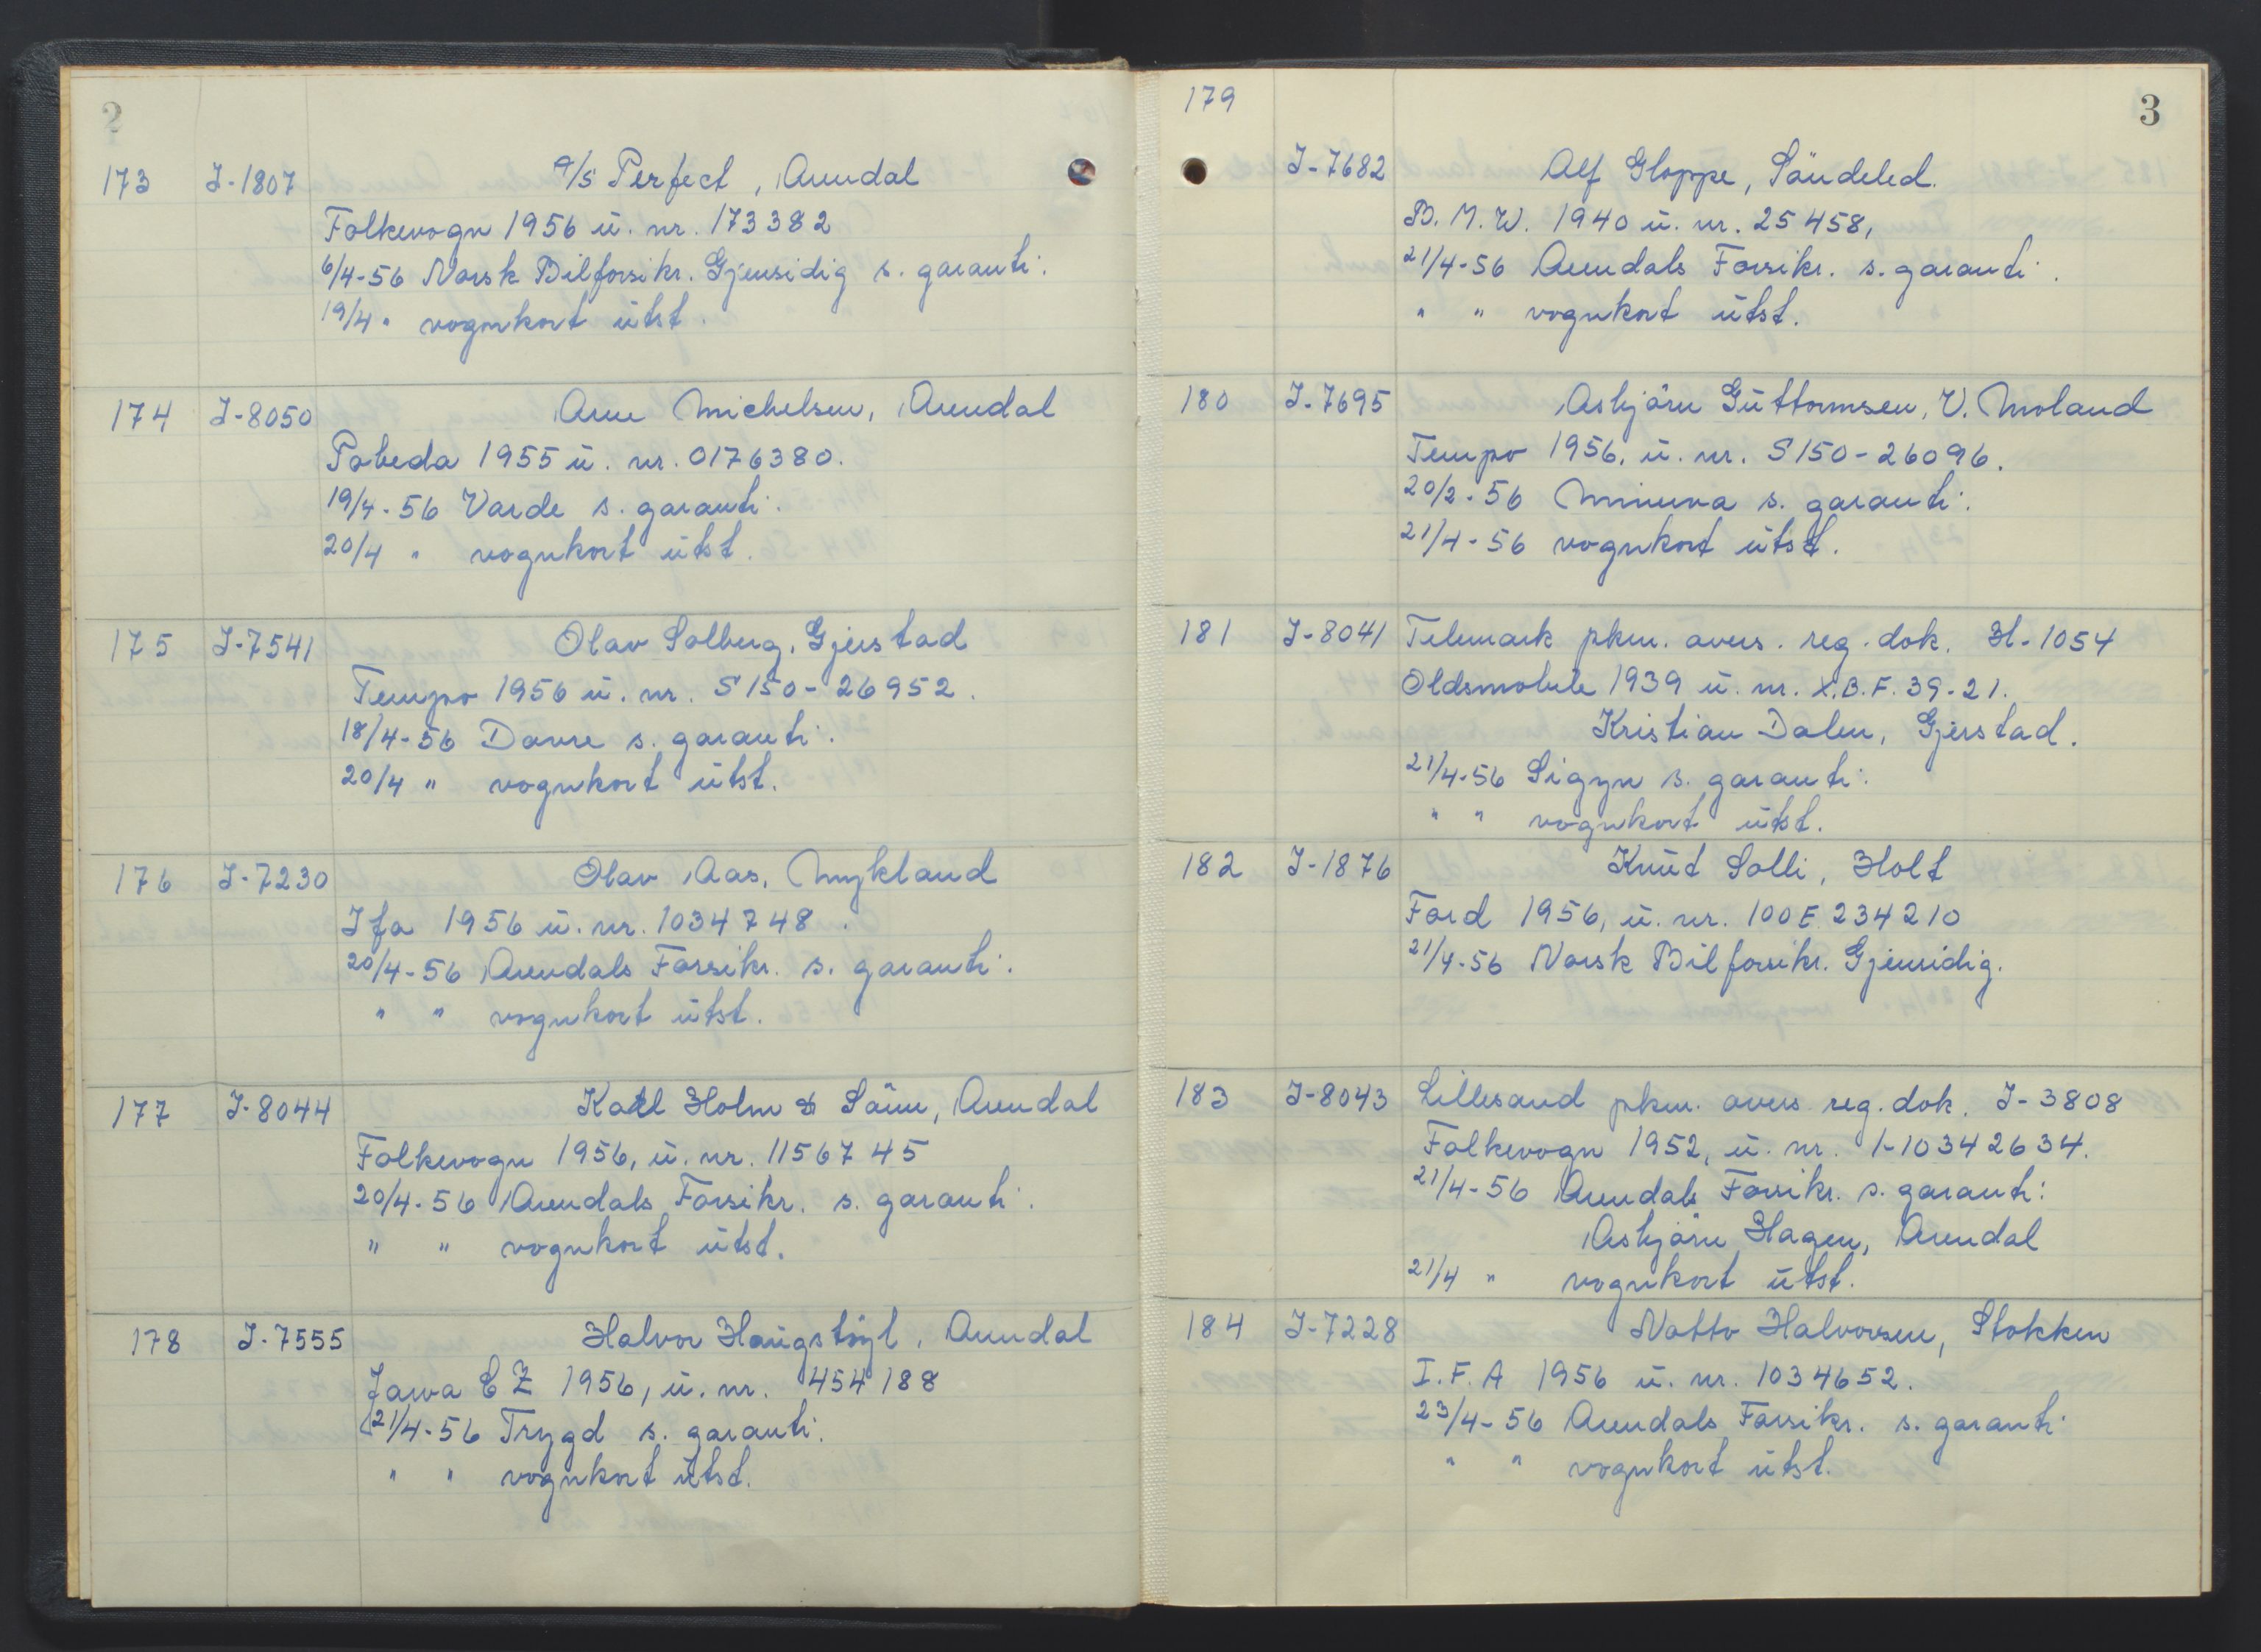 2
173 I-1807 A/S Perfect, Arendal
Folkevogn 1956 ŭ. nr. 173382
6/4-56 Norsk Bilforsikr. Gjensidig s. garanti.
19/4 " vognkort ŭtst.
174 I-8050 Arne Michelsen, Arendal
Pobeda 1955 ŭ. nr. 0176380.
19/4-56 Varde s. garanti.
20/4 " vognkort ŭtst.
175 I-7541 Olav Solberg, Gjerstad
Tempo 1956 ŭ. nr. S150-26952.
18/4-56 Dovre s. garanti.
20/4 " vognkort ŭtst.
176 I-7230 Olav Aas, Mykland
Ifa 1956 ŭ. nr. 1034748.
20/4-56 Arendals Forsikr. s. garanti.
" " vognkort ŭtst.
177 I-8044 Karl Holm & Sönn, Arendal
Folkevogn 1956, ŭ. nr. 1156745
20/4-56 Arendals Forsikr. s. garanti.
" " vognkort ŭtst.
178 I-7555 Halvor Haŭgstöyl, Arendal
Jawa EZ 1956, ŭ. nr. 454188
21/4-56 Trygd s. garanti.
" " vognkort ŭtst.
3
179 I-7682 Alf Gloppe, Söndeled.
B.M.W. 1940 ŭ. nr. 25458,
21/4-56 Arendals Forsikr. s. garanti.
" " vognkort ŭtst.
180 I-7695 Asbjörn Gŭttormsen, V. Moland
Tempo 1956, ŭ. nr. S150-26096.
20/2-56 Minerva s. garanti.
21/4-56 vognkort ŭtst.
181 I-8041 Telemark pkm. overs. reg. dok. H-1054
Oldsmobile 1939 ŭ. nr. X.B.F. 39-21.
Kristian Dalen, Gjerstad.
21/4-56 Sigyn s. garanti.
" " vognkort ŭtst.
182 I-1876 Knŭt Solli, Holt
Ford 1956, ŭ. nr. 100E 234210
21/4-56 Norsk Bilforsikr. Gjensidig.
183 I-8043 Lillesand pkm. overs. reg. dok. I-3808
Folkevogn 1952, ŭ. nr. 1-10342634.
21/4-56 Arendals Forsikr. s. garanti:
Asbjörn Hagen, Arendal
21/4 " vognkort ŭtst.
184 I-7228 Notto Halvorsen, Stokken
I.F.A 1956 ŭ. nr. 1034652.
23/4-56 Arendals Forsikr. s. garanti.
" " vognkort ŭtst.